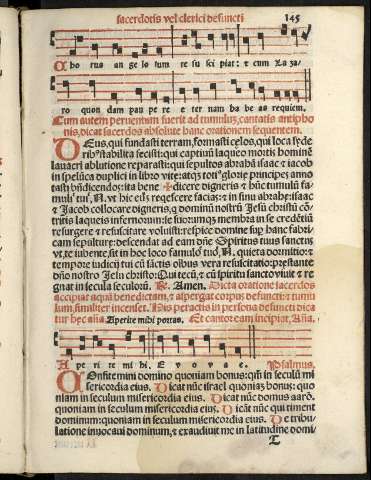 sacerdotis vel clerici defuncti 145
Chorus angelorum te suscipiat: et cum Laza-
ro quondam paupere eternam habeas requiem.
Cum autem perventum fuerit ad tumulum, cantatis antipho
nis, dicat sacerdos absolute hanc orationem sequentem.
DEus, qui fundasti terram, formasti celos, qui
lauari ablutione reparasti: qui sepultos abrahã isaac et iacob
in spelũca duplici in libro vite: atqz
bñdicendos: ita bene ✠dicere digneris et hũc tumulũ fa-
muli tui, N. vt hic eũ requiescere facias: et in sinu abrahe: isaac
et Jacob collocare digneris, q dominũ nostrũ Jesũ christũ cõ-
tritis laqueis infernorum: suorumqz membra in se credẽtiũ
resurgere et refuscitare voluisti: respice domine sup hanc fabri-
cam sepulture: descendat ad eam dñe Spiritus tuus sanctus
vt, te iubente, sit in hoc loco famulo tuo, N. quieta dormitio: et
tempore iudicij tui cũ sãctis oibus vera resuscitatio: prestante
dño nostro Jesu christo: Qui tecũ, et cũ spiritu sancto viuit et re
gnat in secula seculorũ. ℟. Amen. Dicta oratione sacerdos
accipiat aquã benedictam, et aspergat corpus defuncti: et tumu
lum, similiter incenset. His peractis in persona defuncti dica
tur hec añã. Aperite mihi portas. Et cantor eam incipiat, Aña.
Aperite mihi. Evovae. Psalmus.
COnfitemini domino quoniam bonus: qm̃ in seculũ mi
sericordia eius. Dicat nũc israel quoniaz bonus: quo
niam in seculum misericordia eius. Dicat nũc domus aarõ.
quoniam in seculum misericordia eius. Dicat nũc qui timent
dominum: quoniam in seculum misericordia eius. De tribu-
latione inuocaui dominum, et exaudiuit me in latitudine domi
T